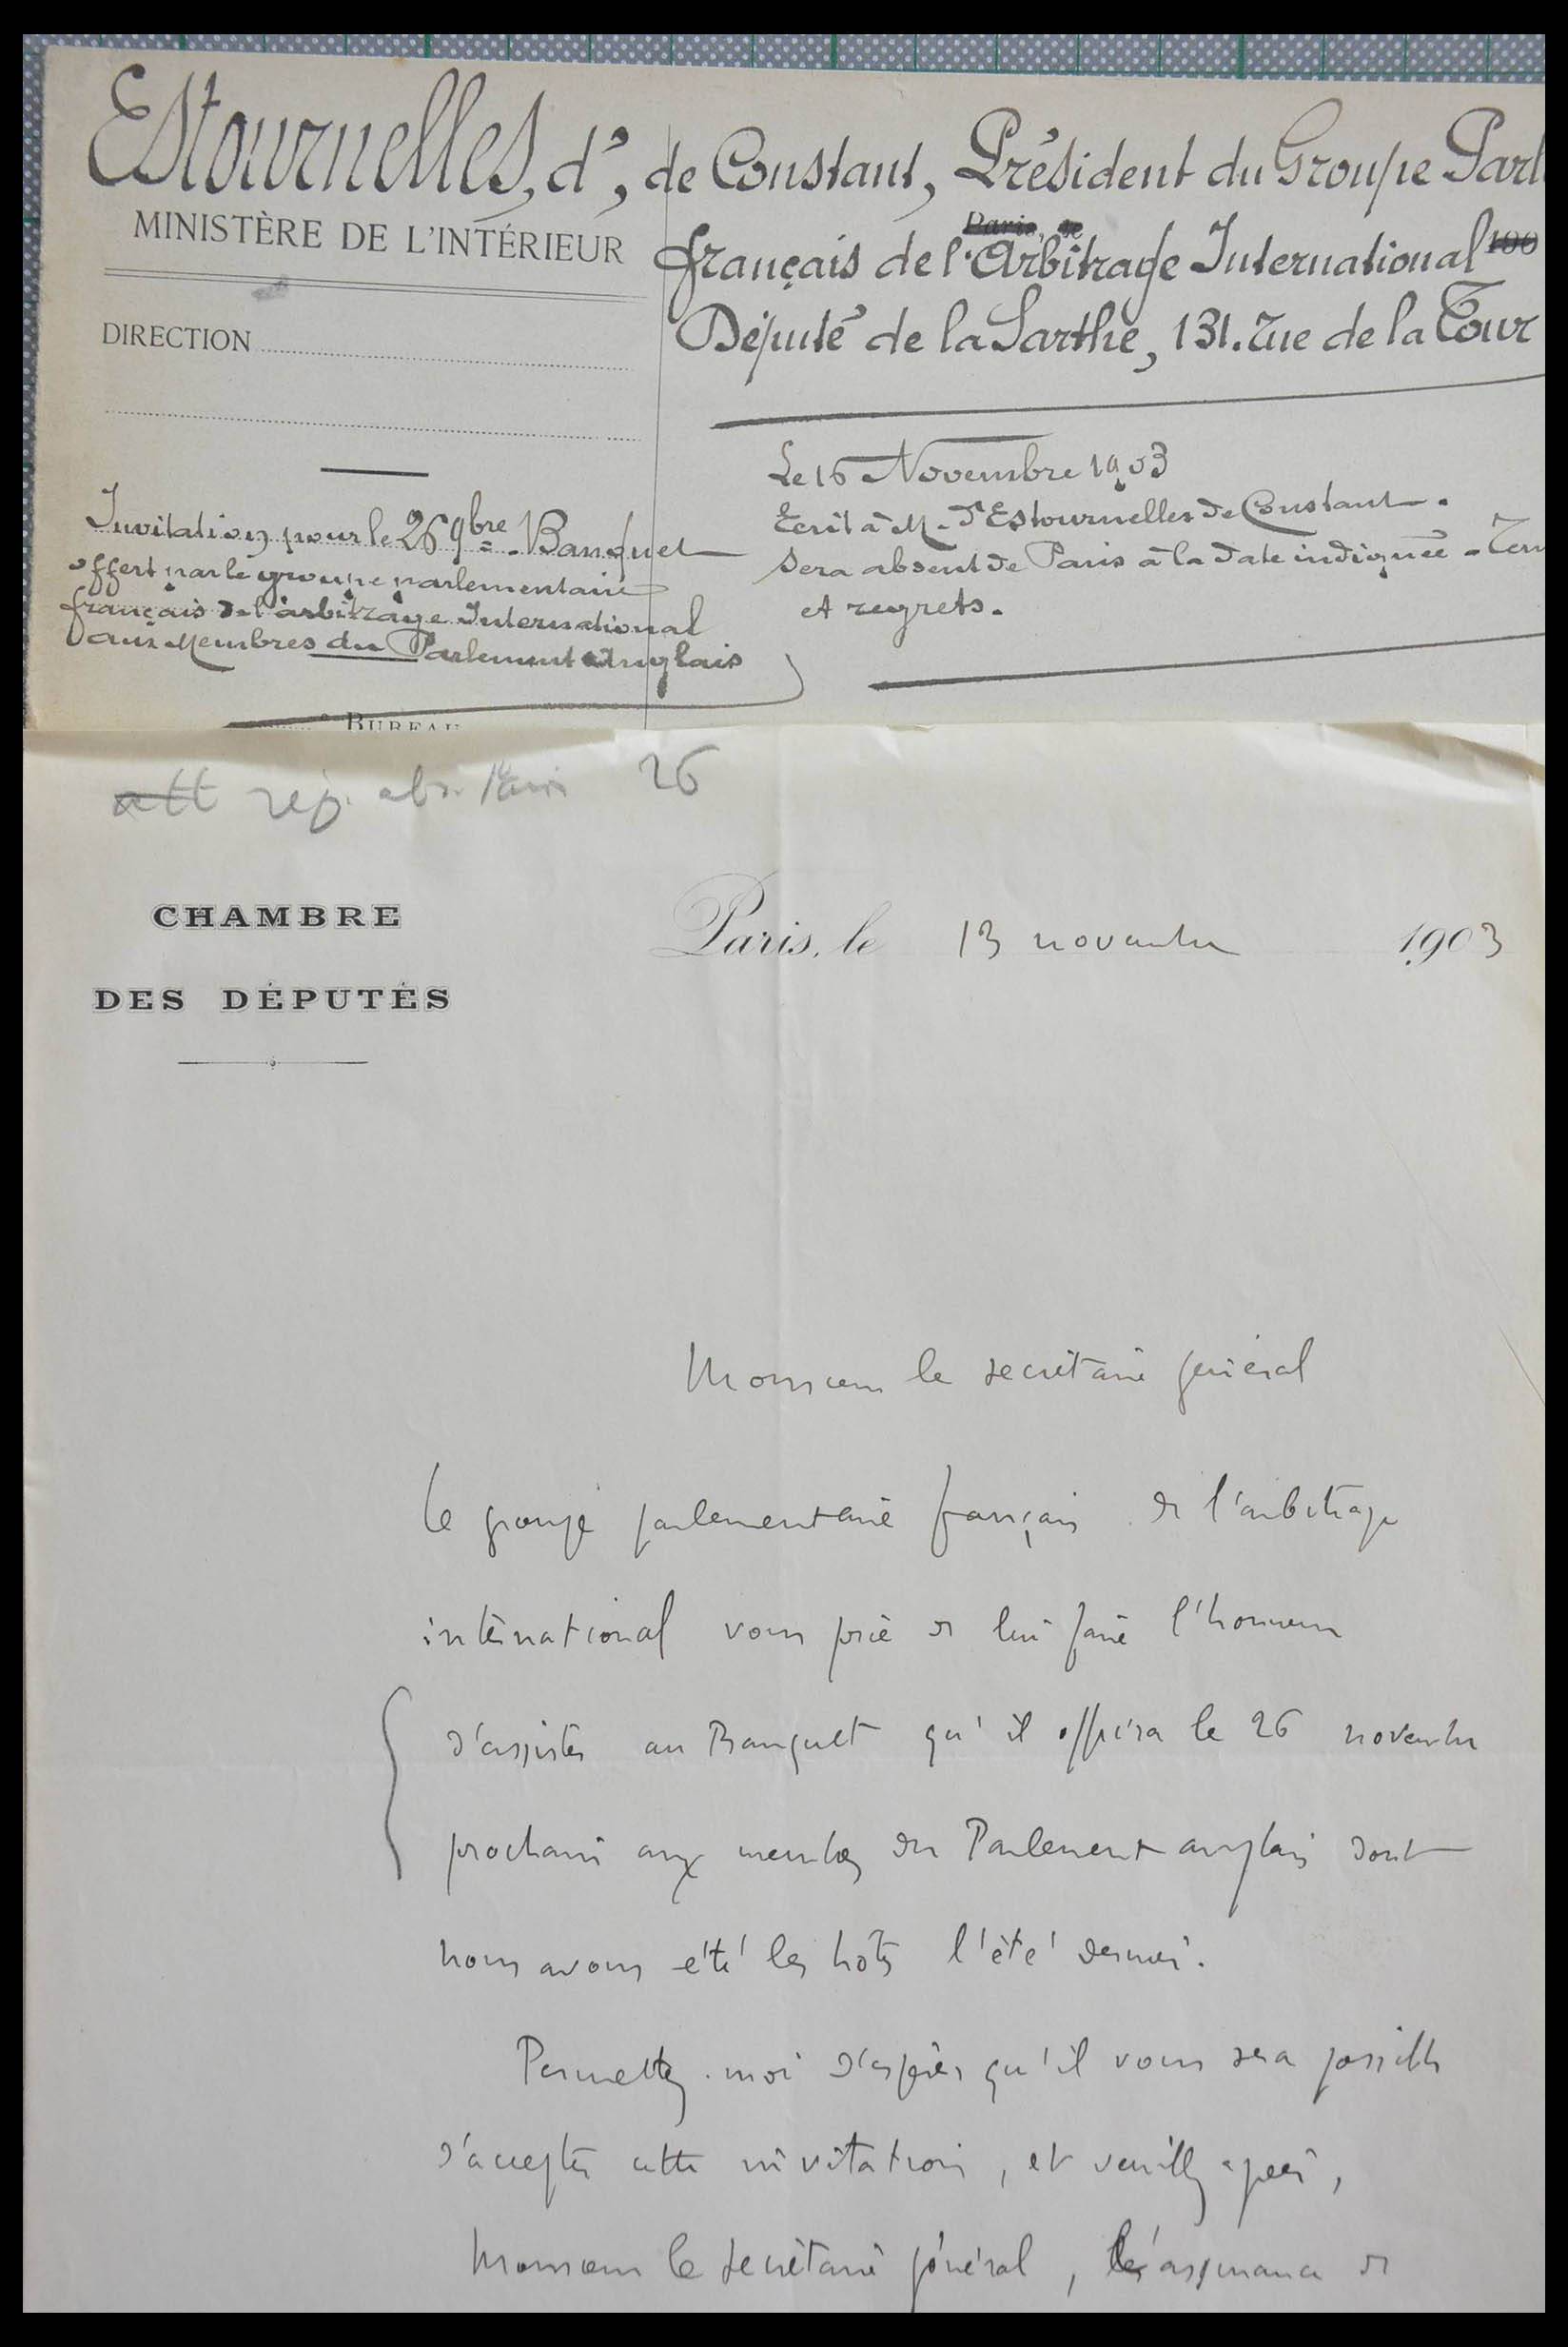 Estournelles, d', de Constant, Président du Groupe Parl
MINISTÈRE DE L'INTÉRIEUR
Paris, le
français de l'Arbitrage International
190
Député de la Sarthe, 131. rue de la Tour
DIRECTION
Le 16 Novembre 1903
Ecrit à M. d'Estournelles de Constant.
Sera absent de Paris à la date indiquée - Rem
et regrets.
Invitation pour le 26 9bre. Banquet
offert par le groupe parlementaire
français de l'arbitrage International
aux Membres du Parlement Anglais
BUREAU
att rép. abs. Paris 26
CHAMBRE
DES DÉPUTÉS
Paris, le 13 novembre 1903
Monsieur le secrétaire général
le groupe parlementaire français de l'arbitrage
international vous prie de lui faire l'honneur
d'assister au Banquet qu'il offrira le 26 novembre
prochain aux membres du Parlement anglais dont
nous avons été les hôtes l'été dernier.
Permettez-moi d'espérer qu'il vous sera possible
d'accepter cette invitation, et veuillez agréer,
Monsieur le secrétaire général, l'assurance de